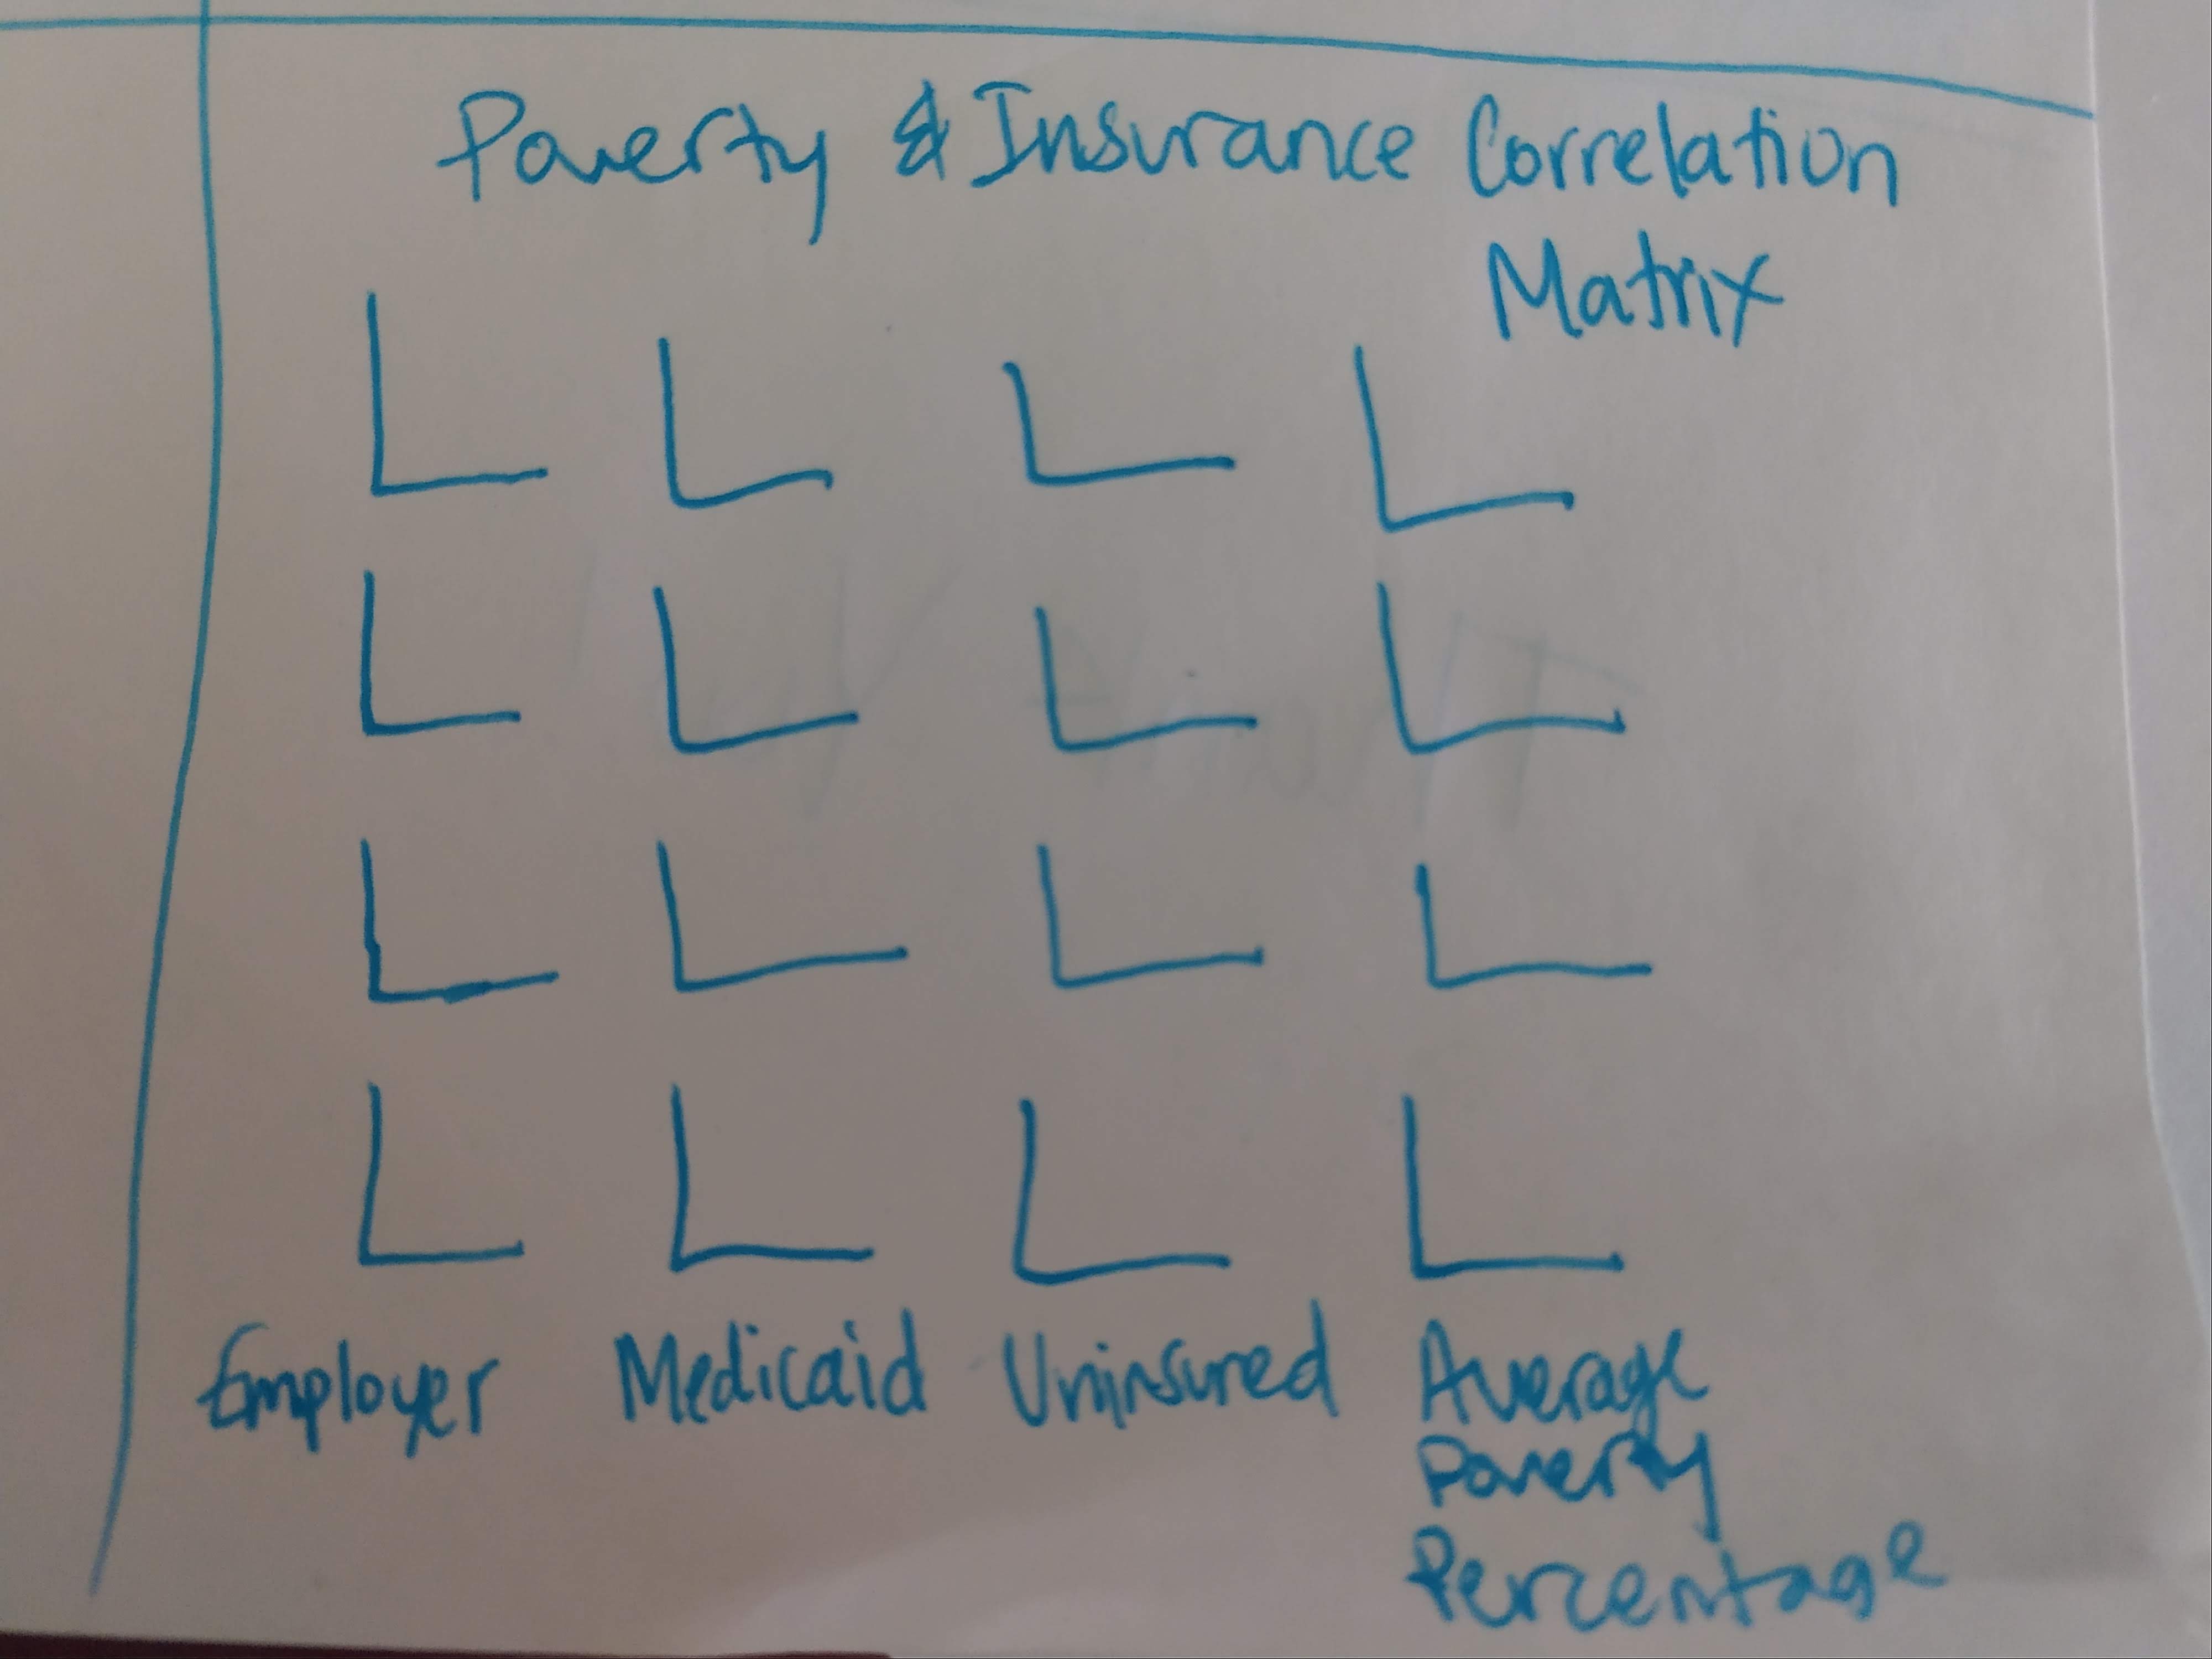 Poverty & Insurance Correlation
Matrix
Employer Medicaid Uninsured Average
Poverty
Percentage